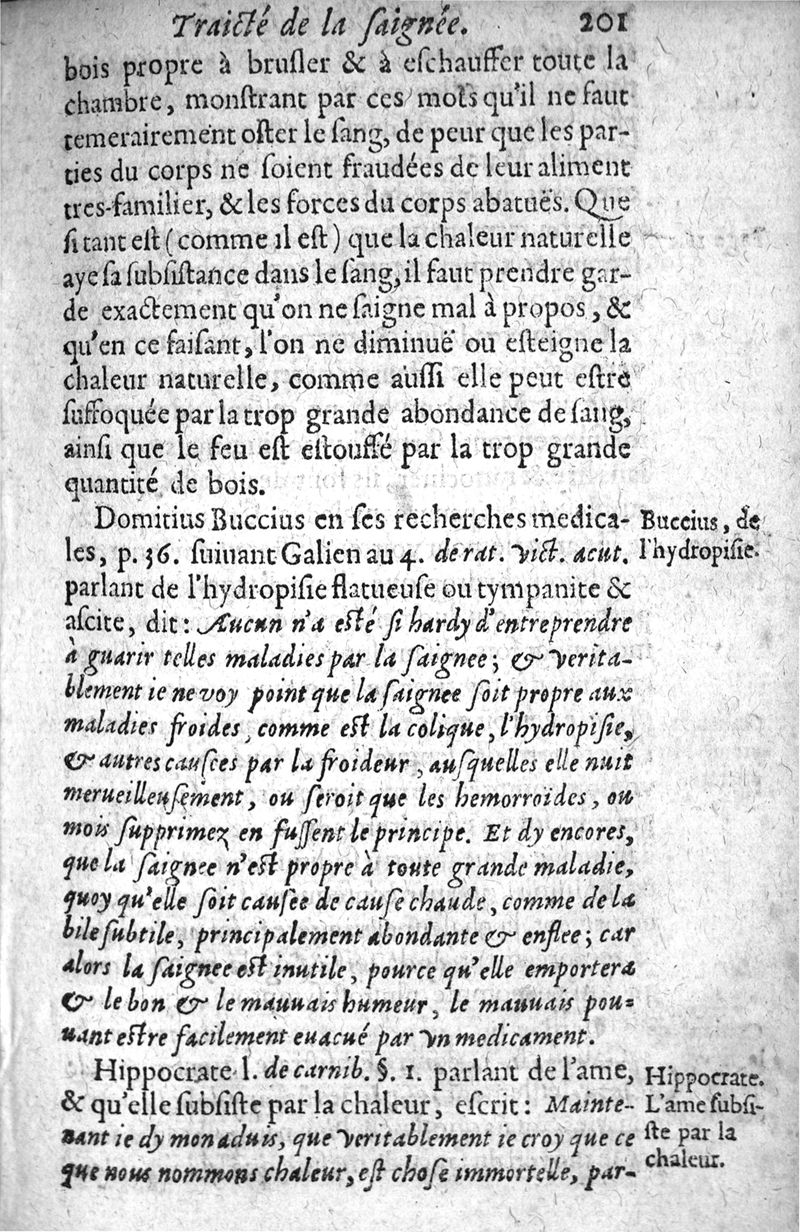 Traicté de la ſaignée. 201
bois propre à bruſler & à eſchauffer toute la
chambre, monſtrant par ces mots qu'il ne faut
temerairement oſter le ſang, de peur que les par-
ties du corps ne ſoient fraudées de leur aliment
tres-familier, & les forces du corps abatuës. Que
ſi tant eſt (comme il eſt) que la chaleur naturelle
aye ſa ſubſiſtance dans le ſang, il faut prendre gar-
de exactement qu'on ne ſaigne mal à propos, &
qu'en ce faiſant, l'on ne diminuë ou eſteigne la
chaleur naturelle, comme auſſi elle peut eſtre
ſuffoquée par la trop grande abondance de ſang,
ainſi que le feu eſt eſtouffé par la trop grande
quantité de bois.
Domitius Buccius en ſes recherches medica-
les, p. 36. ſuiuant Galien au 4. de rat. vict. acut.
Buccius, de
l'hydropiſie.
parlant de l'hydropiſie flatueuſe ou tympanite &
aſcite, dit: Aucun n'a eſté ſi hardy d'entreprendre
à guarir telles maladies par la ſaignee; & verita-
blement ie ne voy point que la ſaignee ſoit propre aux
maladies froides, comme eſt la colique, l'hydropiſie,
& autres cauſees par la froideur, auſquelles elle nuit
merueilleuſement, ou ſeroit que les hemorroides, ou
mois ſupprimez en fuſſent le principe. Et dy encores,
que la ſaignee n'eſt propre à toute grande maladie,
quoy qu'elle ſoit cauſee de cauſe chaude, comme de la
bile ſubtile, principalement abondante & enflee; car
alors la ſaignee eſt inutile, pource qu'elle emportera
& le bon & le mauuais humeur, le mauuais pou-
uant eſtre facilement euacué par vn medicament.
Hippocrate l. de carnib. §. 1. parlant de l'ame,
& qu'elle ſubſiſte par la chaleur, eſcrit: Mainte-
nant ie dy mon aduis, que veritablement ie croy que ce
que nous nommons chaleur, eſt choſe immortelle, par-
Hippocrate.
L'ame ſubſi-
ſte par la
chaleur.